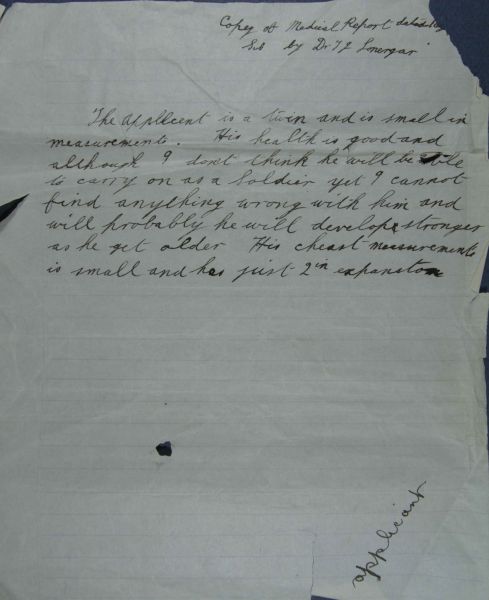 Copey of Medical Report
by Dr T J Lonergan
The applecent is a twin and is small in
measurements. His health is good and
although I don't think he will be able
to carry on as a Soldier yet I cannot
find anything wrong with him and
will probably he will develope stronger
as he get older His cheast measurements
is small and has just 2 in expanston
applicant